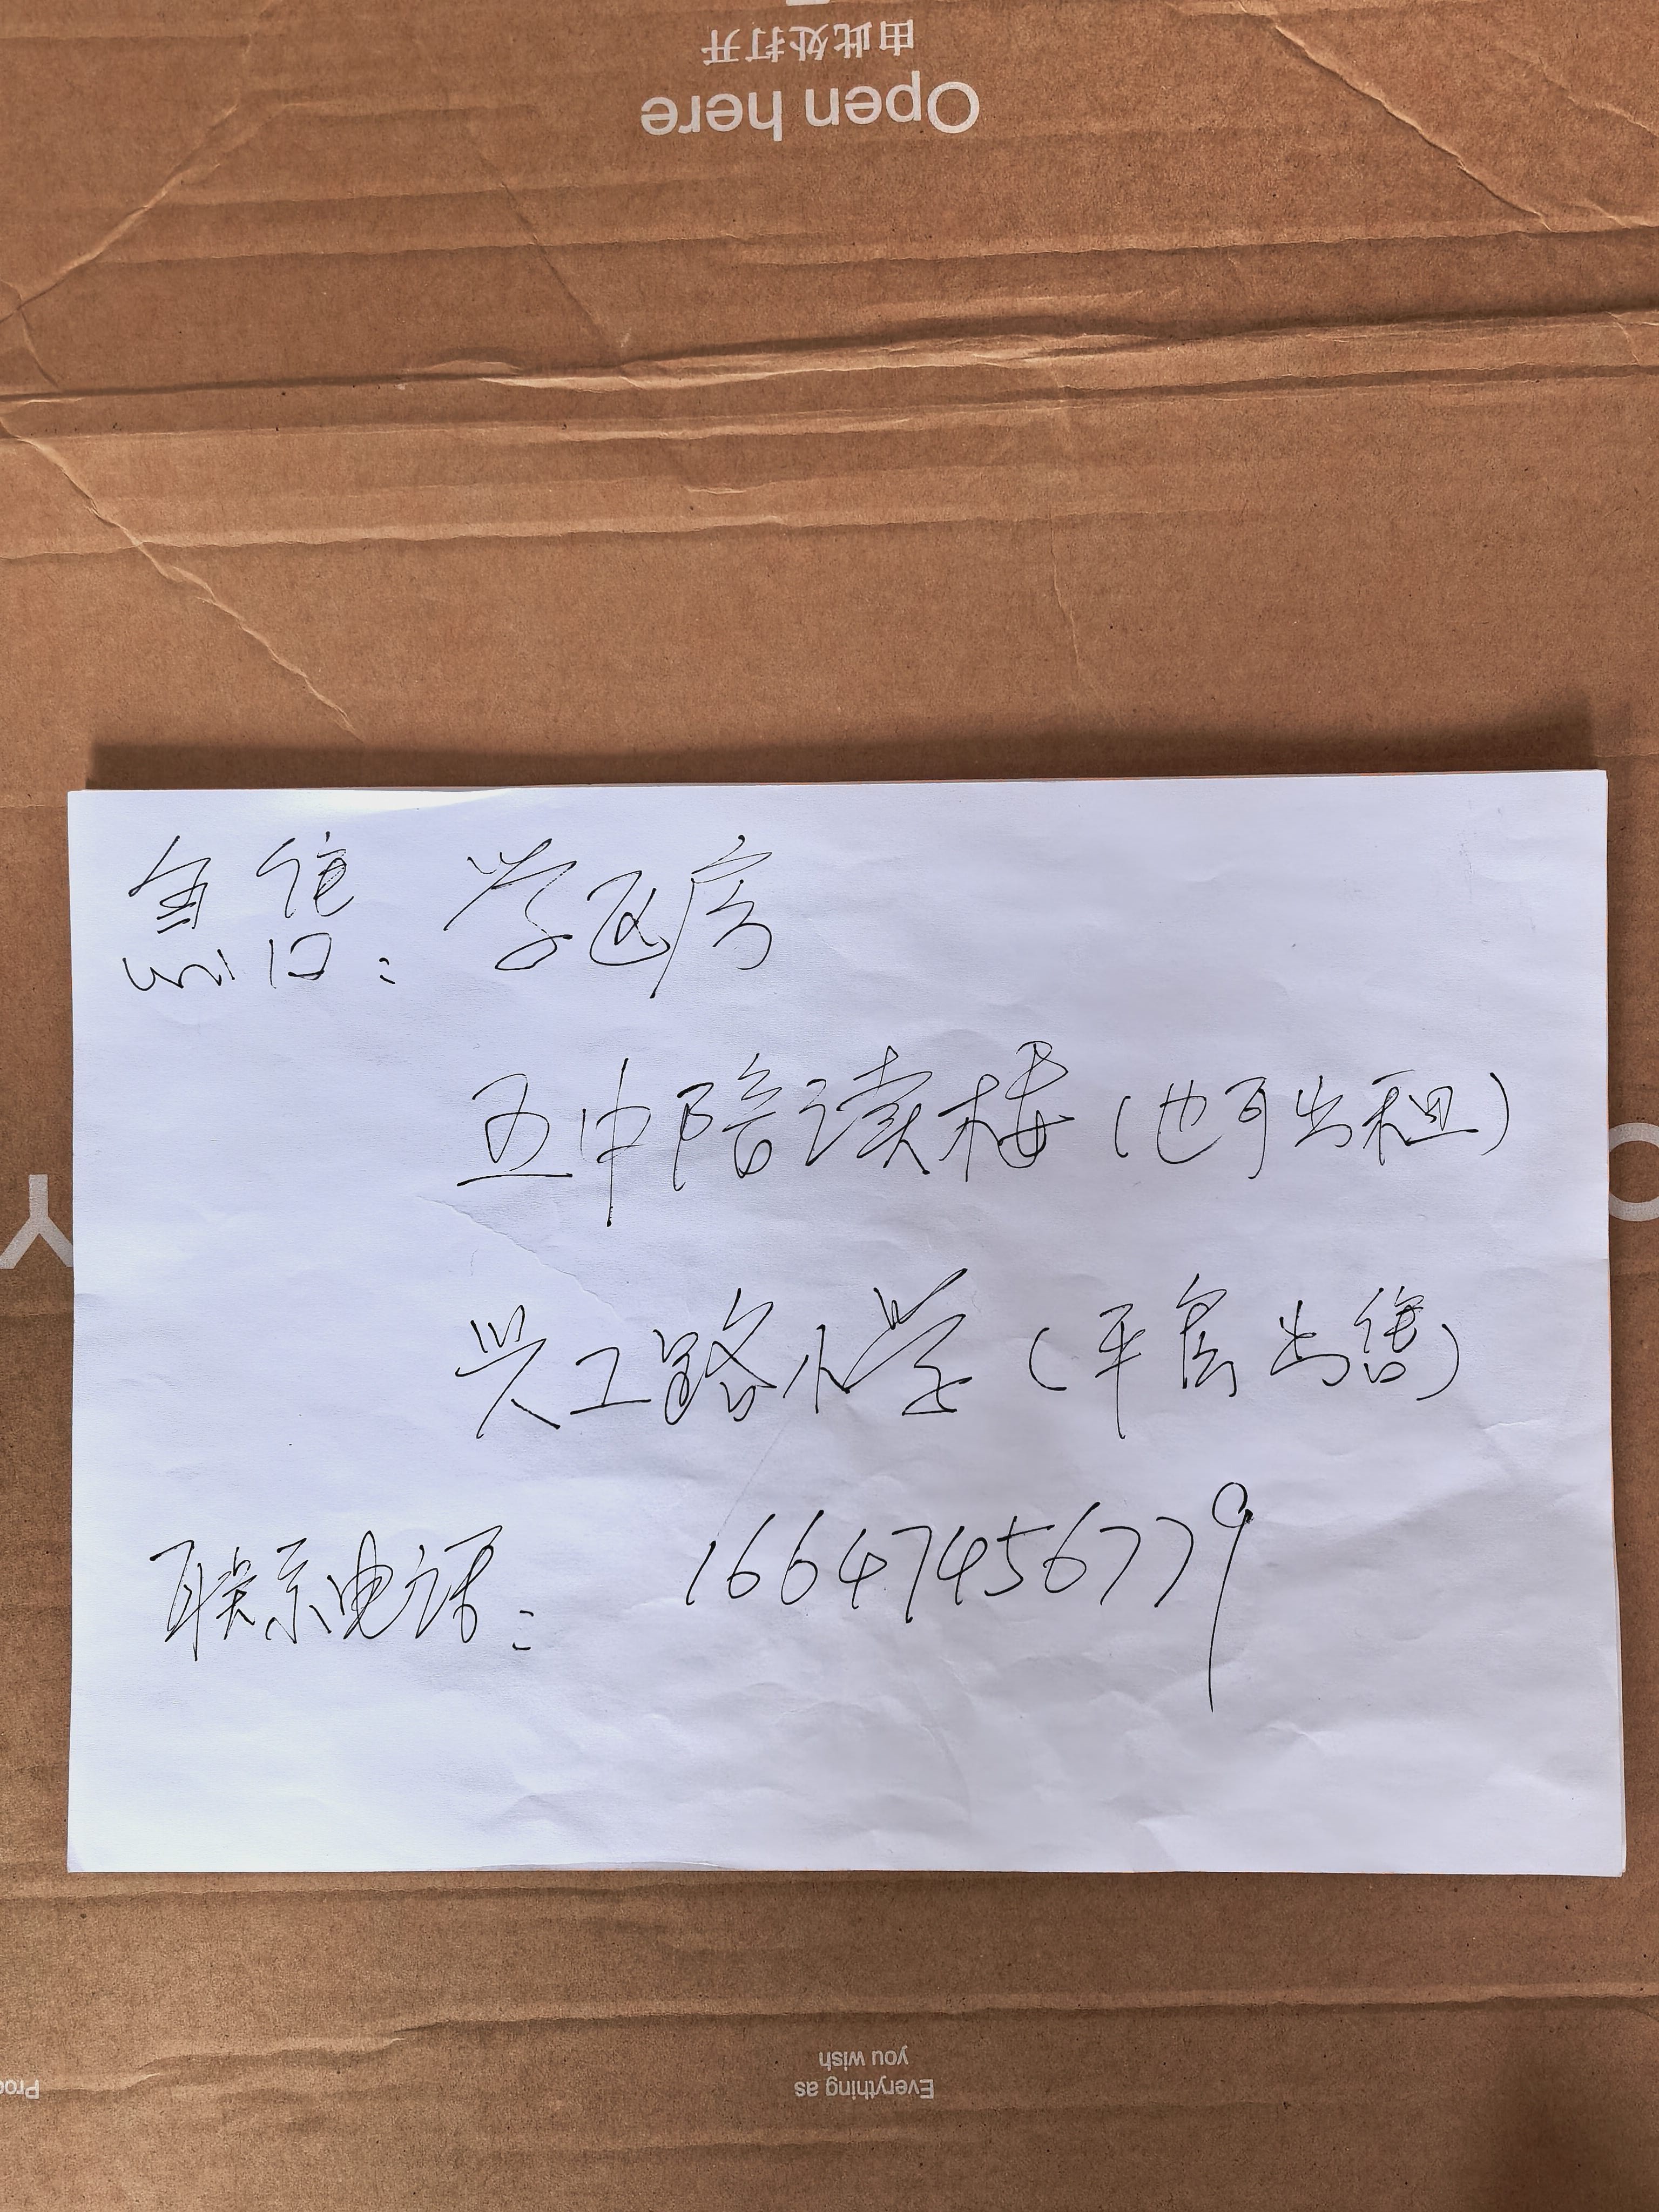 由此处打开
Open here
急售：学区房
五中陪读楼（也可出租）
兴工路小学（平房出售）
联系电话：16647456779
Everything as
you wish